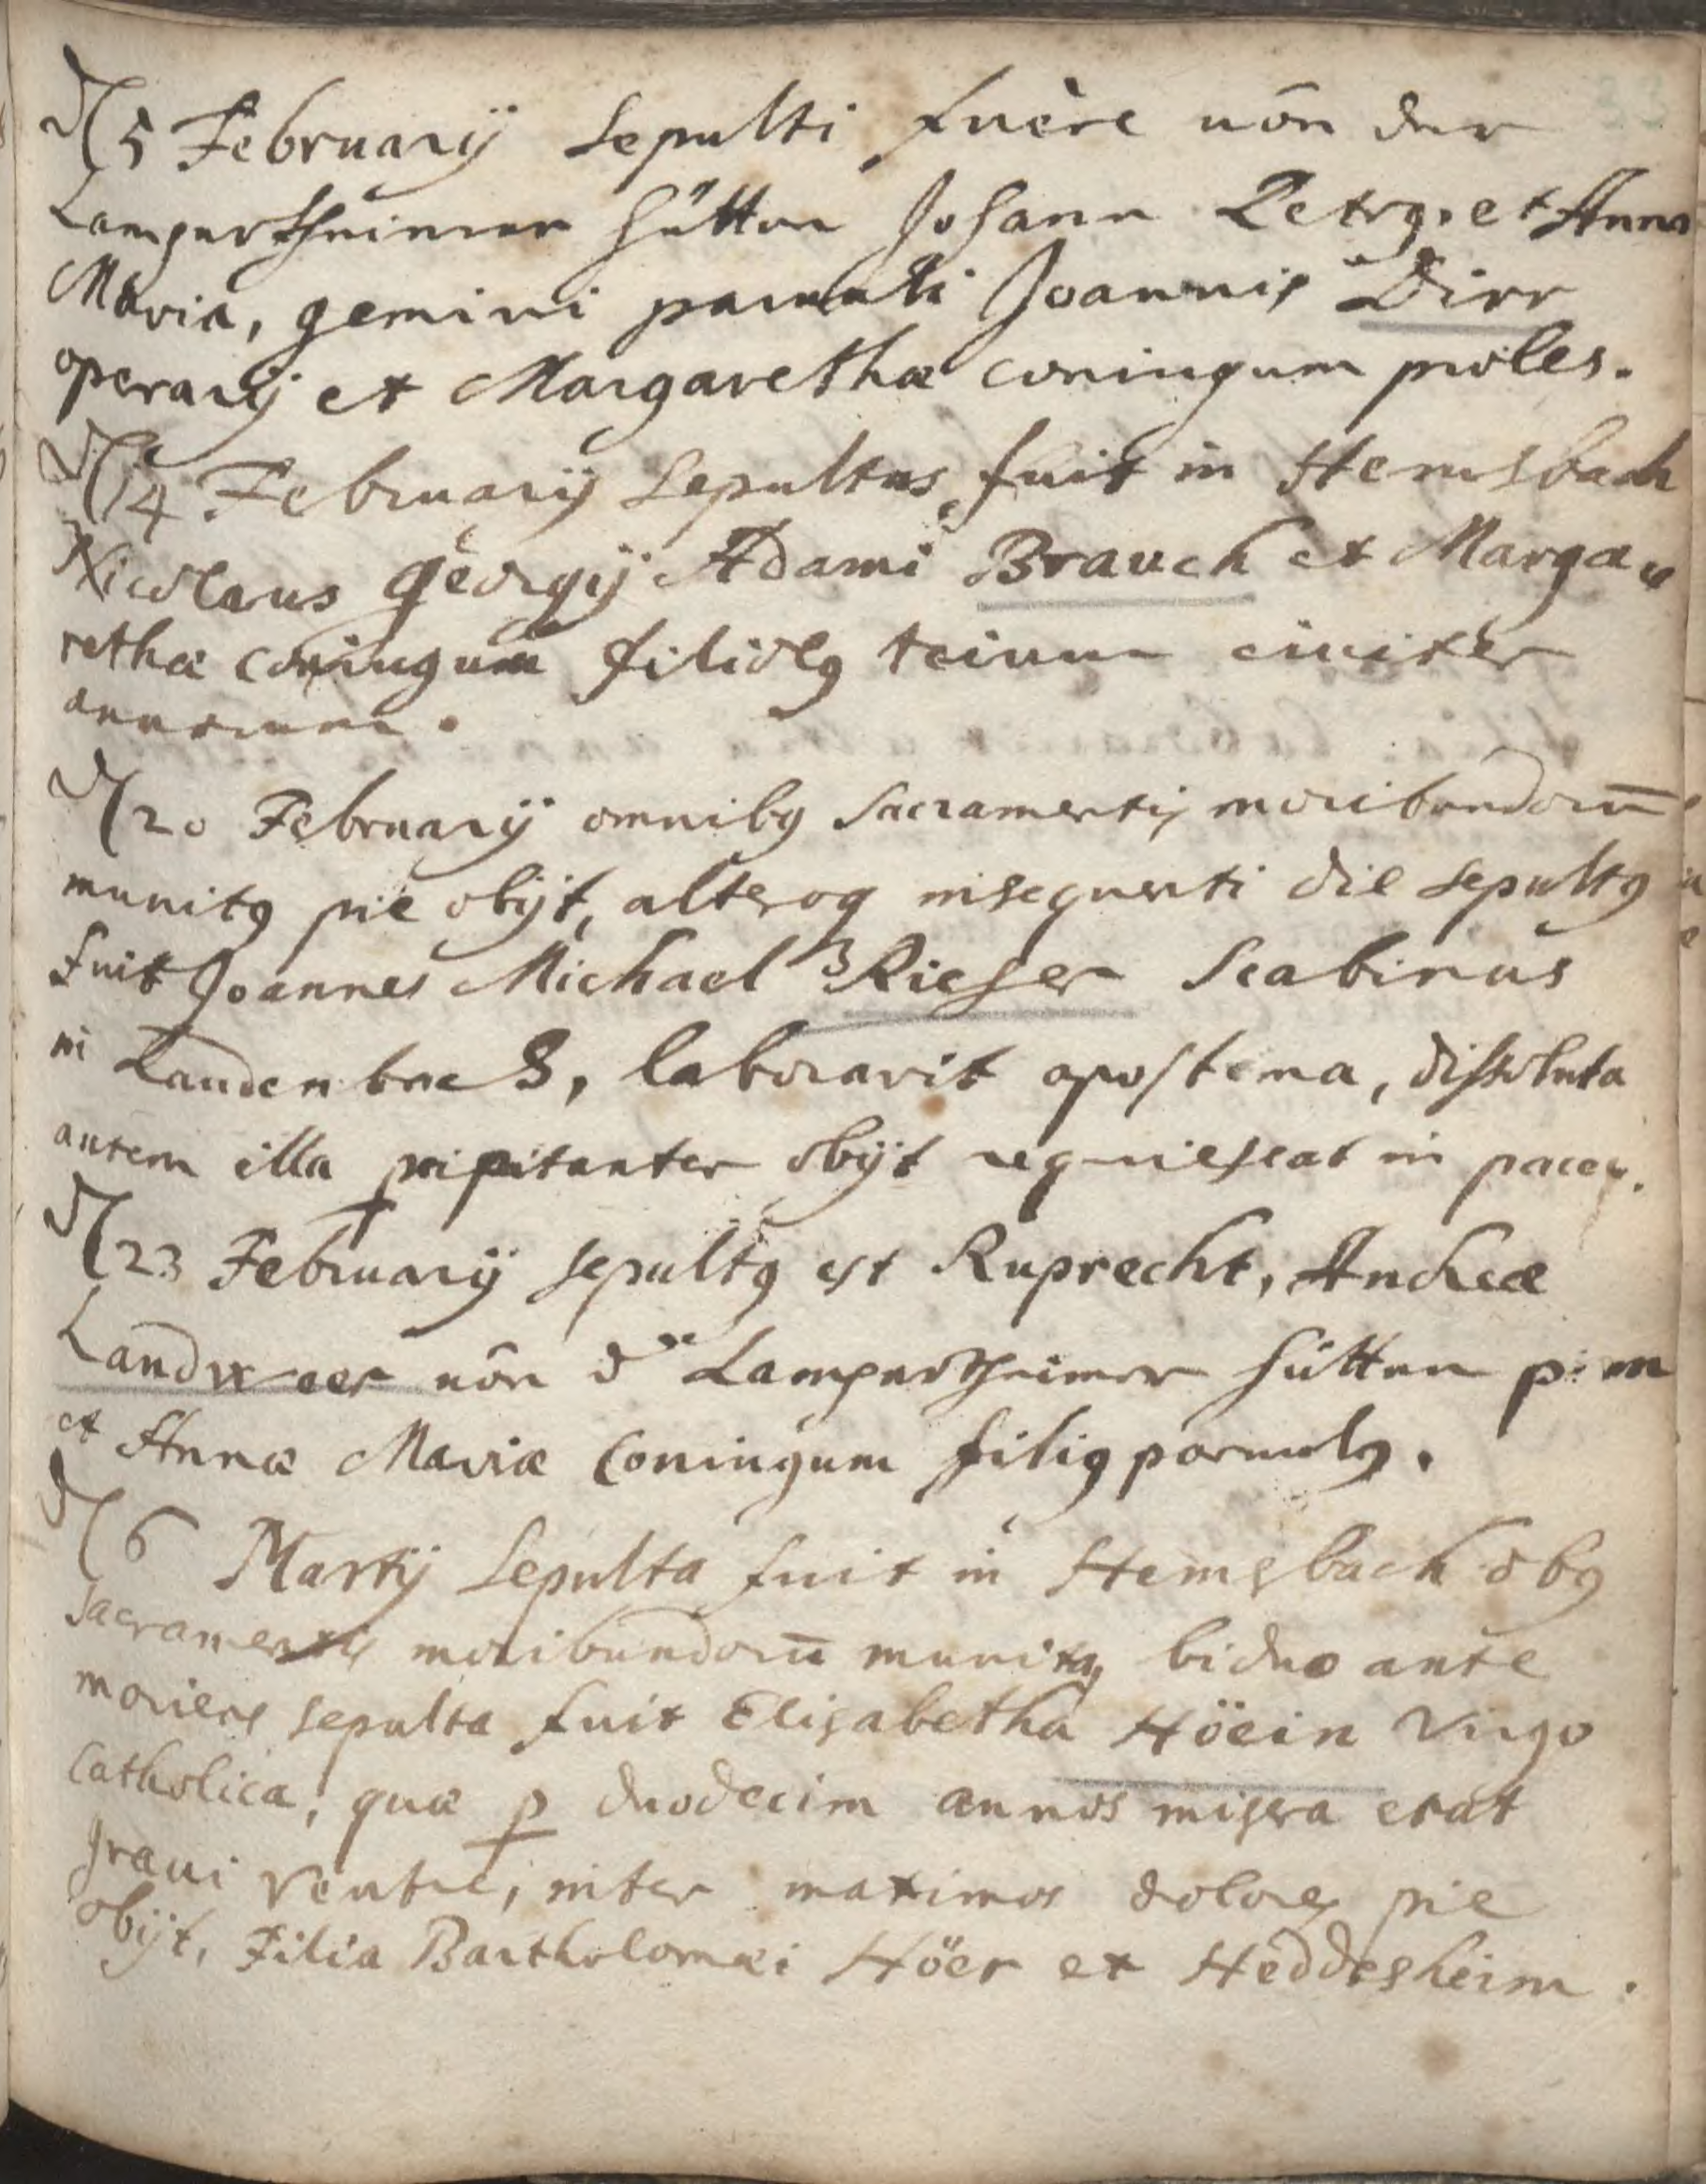 d 5 Februarij Sepulti fuêre von der
Lampertheimer hütten Johann Petrq et Anna
Maria, gemini parvuli Joannis Dirr
operarij et Margarethæ coniugum proles.
d 14 Februarij Sepultus fuit in Hemsbach
Nicolaus Georgij Adami Brauch et Marga„
rethæ coniugum filiolq trium circiter
annorum.
d 20 Februarij omnibq Sacramentis moribundorū
munitq pie obijt, alteroq insequenti die sepultq
fuit Joannes Michael Rieser Scabinus
in Laudenbach, laboravit apostema, dissoluta
autem illa obijt requiescat in pace.
d 23 Februarij sepultq est Ruprecht, Andreæ
Landweer von dr Lampertheimer hütten p: m
et Annæ Mariæ Coniugum filiq parvulq.
d 6 Martij Sepulta fuit in Hemsbach obq
Sacramentis moribundorū munita, biduo ante
moriens sepulta fuit Elisabetha Höein Virgo
Catholica, quæ p duodecim annos misera erat
gravi ventre, inter maximos dolores pie
obijt, Filia Bartholomæi Höer ex Heddesheim.